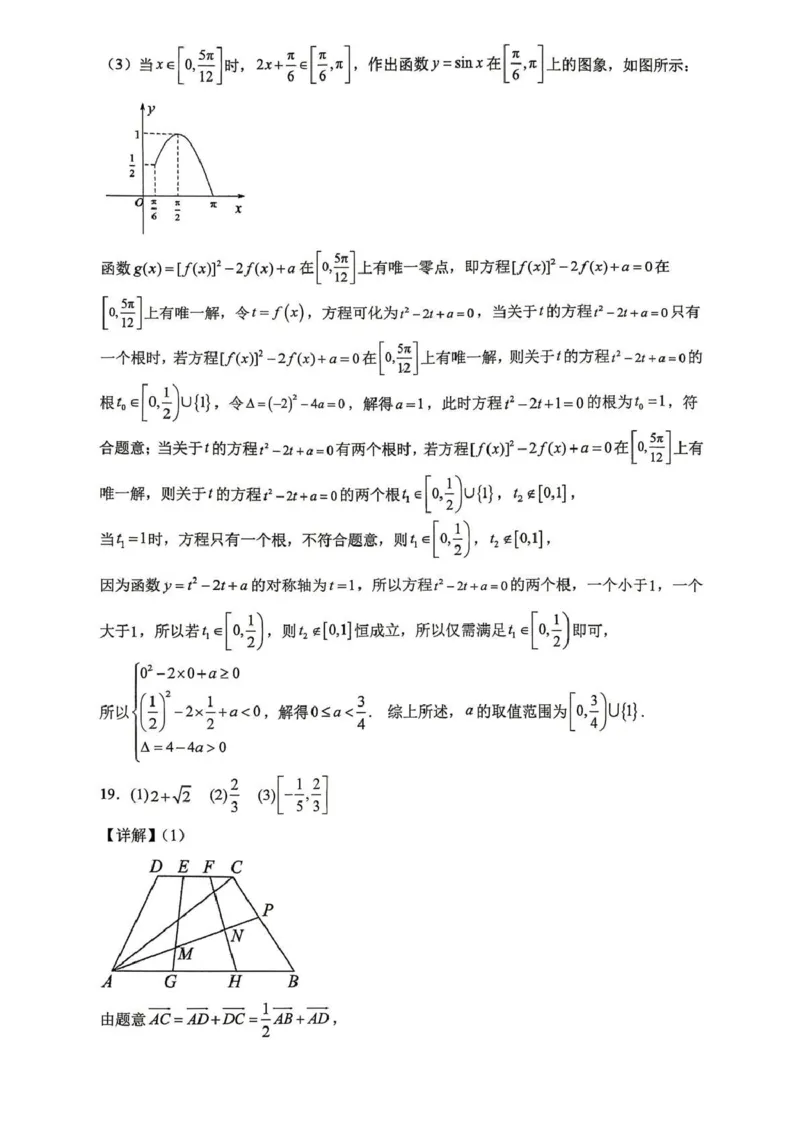 (3)当x∈[0,5π/12]时，2x+π/6∈[π/6,π]，作出函数y=sin x在[π/6,π]上的图象，如图所示：
y
1
1/2
O π/6 π/2 π x
函数g(x)=[f(x)]²−2f(x)+a在[0,5π/12]上有唯一零点，即方程[f(x)]²−2f(x)+a=0在
[0,5π/12]上有唯一解，令t=f(x)，方程可化为t²−2t+a=0，当关于t的方程t²−2t+a=0只有
一个根时，若方程[f(x)]²−2f(x)+a=0在[0,5π/12]上有唯一解，则关于t的方程t²−2t+a=0的
根t₀∈[0,1/2)∪{1}，令Δ=(−2)²−4a=0，解得a=1，此时方程t²−2t+1=0的根为t₀=1，符
合题意；当关于t的方程t²−2t+a=0有两个根时，若方程[f(x)]²−2f(x)+a=0在[0,5π/12]上有
唯一解，则关于t的方程t²−2t+a=0的两个根t₁∈[0,1/2)∪{1}，t₂∉[0,1]，
当t₁=1时，方程只有一个根，不符合题意，则t₁∈[0,1/2)，t₂∉[0,1]，
因为函数y=t²−2t+a的对称轴为t=1，所以方程t²−2t+a=0的两个根，一个小于1，一个
大于1，所以若t₁∈[0,1/2)，则t₂∉[0,1]恒成立，所以仅需满足t₁∈[0,1/2)即可，
0²−2×0+a≥0
所以{(1/2)²−2×1/2+a<0，解得0≤a<3/4． 综上所述，a的取值范围为[0,3/4)∪{1}．
Δ=4−4a>0
19．(1)2+√2 (2)2/3 (3)[−1/5,2/3]
【详解】（1）
D E F C
P
N
M
A G H B
由题意AC→=AD→+DC→=1/2AB→+AD→，